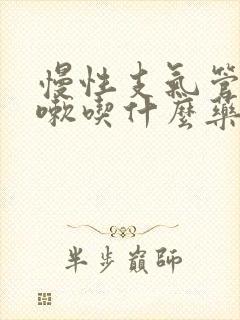 慢性支氣管
嗽喫什麼藥
半步巔師